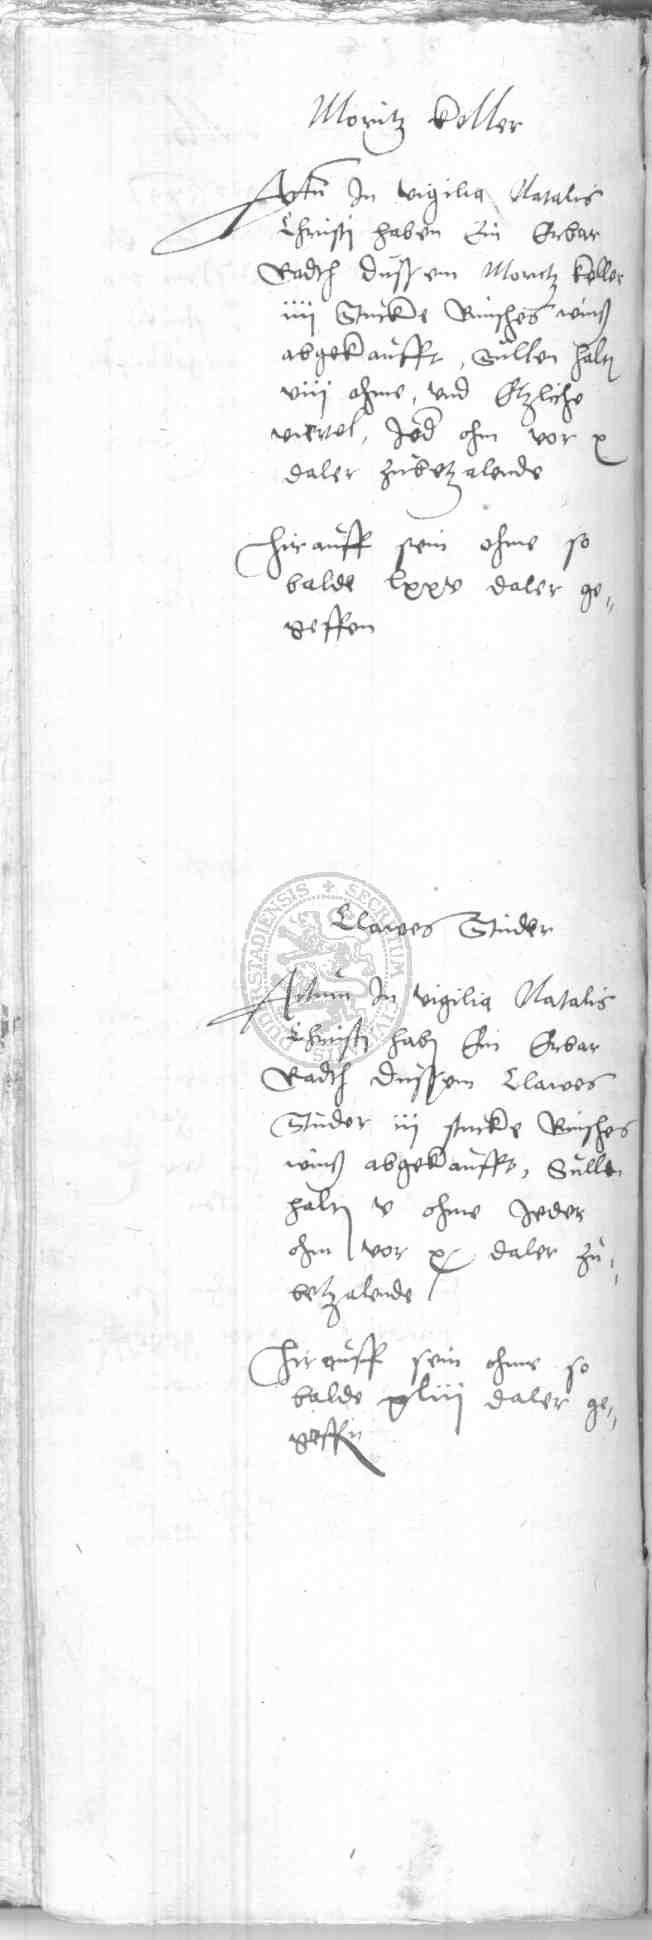 Moritz Keller
Actu In vigilia Natalis
Christi haben Ein Erbar
Radth dussem Moritz Keller
iiii Stucke Rinsches wins
abgekaufft, Sullen halt
viii ohme, vnd Etzliche
viertel, Jed ohm vor x
daler zubetzalende
Hirauff sein ohme so
balde lxxv daler ge„
geffen
Clawes Studer
Actum In vigilia Natalis
Christi hab Ein Erbar
Radth dussem Clawes
Studer iii stucke Rinsches
wins abgekaufft, Sullen
halt v ohme Jeder
ohm vor x daler zu„
betzalende
Hirauff sein ohme so
balde xliii daler ge„
geffn
SECRETUM CIVITATIS